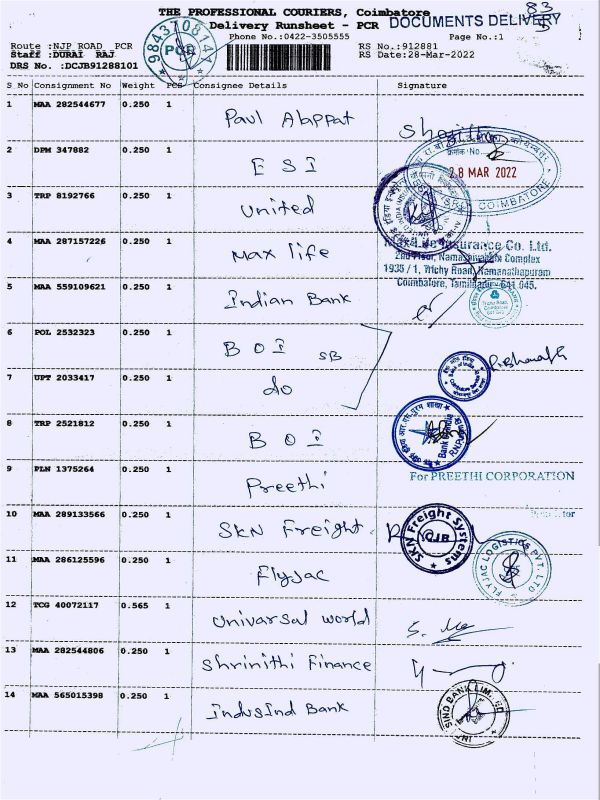 83
THE PROFESSIONAL COURIERS, Coimbatore
Delivery Runsheet - PCR
DOCUMENTS DELIVERY
Phone No.:0422-3505555
Page No.:1
Route :NJP ROAD PCR
RS No.:912881
Staff :DURAI RAJ
RS Date:28-Mar-2022
DRS No. :DCJB91288101
9843708147
PCR
S_No Consignment No Weight PCS Consignee Details Signature
1 MAA 282544677 0.250 1 Paul Alappat
2 DPM 347882 0.250 1 ESI
28 MAR 2022
COIMBATORE
3 TRP 8192766 0.250 1 United
4 MAA 287157226 0.250 1 Max life
Max Life Insurance Co. Ltd.
2nd Floor, Complex
1935 / 1, Trichy Road, Ramanathapuram
Coimbatore, Tamilnadu - 641 045.
5 MAA 559109621 0.250 1 Indian Bank
6 POL 2532323 0.250 1 BOI SB
7 UPT 2033417 0.250 1 do
8 TRP 2521812 0.250 1 BOI
9 PLN 1375264 0.250 1 Preethi
For PREETHI CORPORATION
10 MAA 289133566 0.250 1 SKN Freight
SKN Freight Systems
CJB
11 MAA 286125596 0.250 1 Flyjac
FLYJAC LOGISTICS PVT. LTD
12 TCG 40072117 0.565 1 Univarsal world
13 MAA 282544806 0.250 1 Shrinithi Finance
14 MAA 565015398 0.250 1 IndusInd Bank